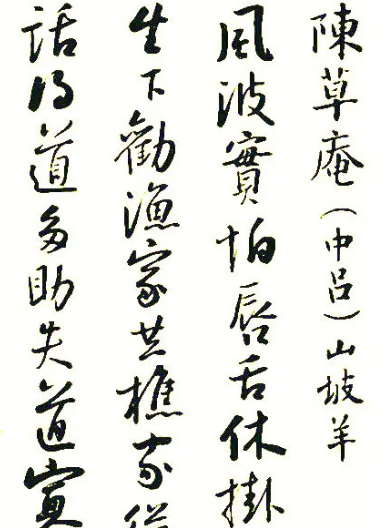 陳草庵(中呂)山坡羊
風波實怕唇舌休掛
生下勸漁家共樵家從
話得道多助失道寡